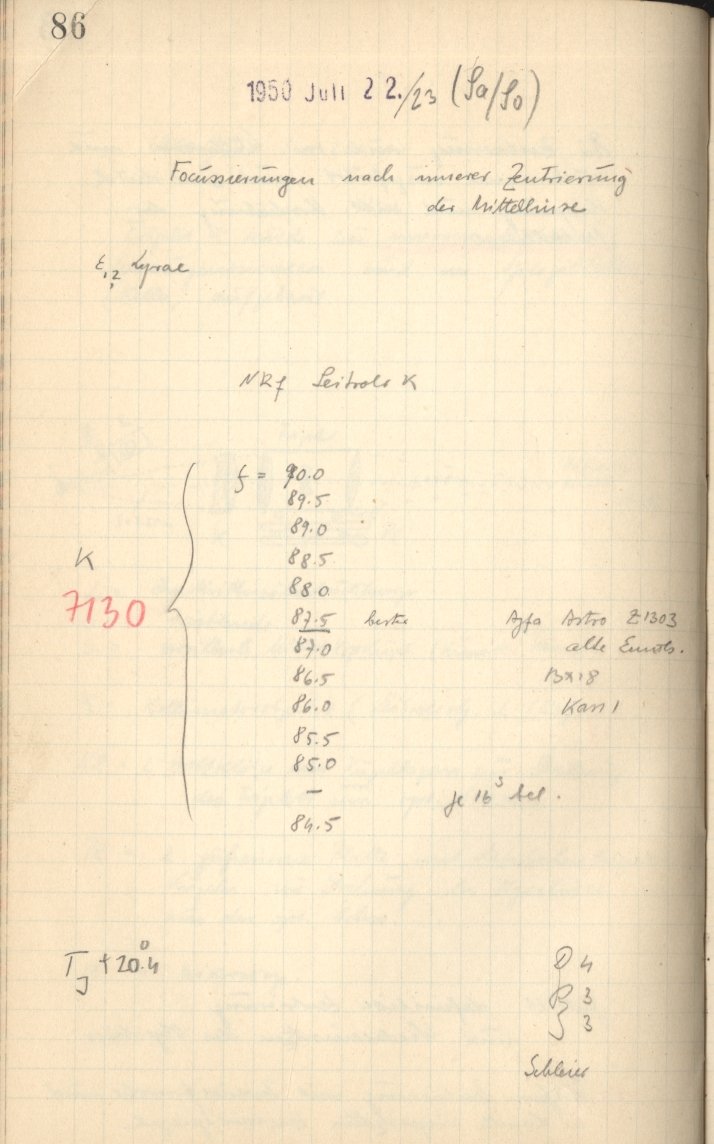 86
1950 Juli 22./23 (Sa/So)
Focussierungen nach innerer Zentrierung
der Mittellinse
ε1,2 Lyrae
NRf Leitrohr K
f = 90.0
89.5
89.0
88.5
88.0
K
7130
87.5 beste Agfa Astro Z1303
87.0 alte Emuls.
86.5 9x18
86.0 Kass 1
85.5
85.0
–
je 16s bel.
84.5
TJ +20°.4
D 4
R 3
S 3
Schleier